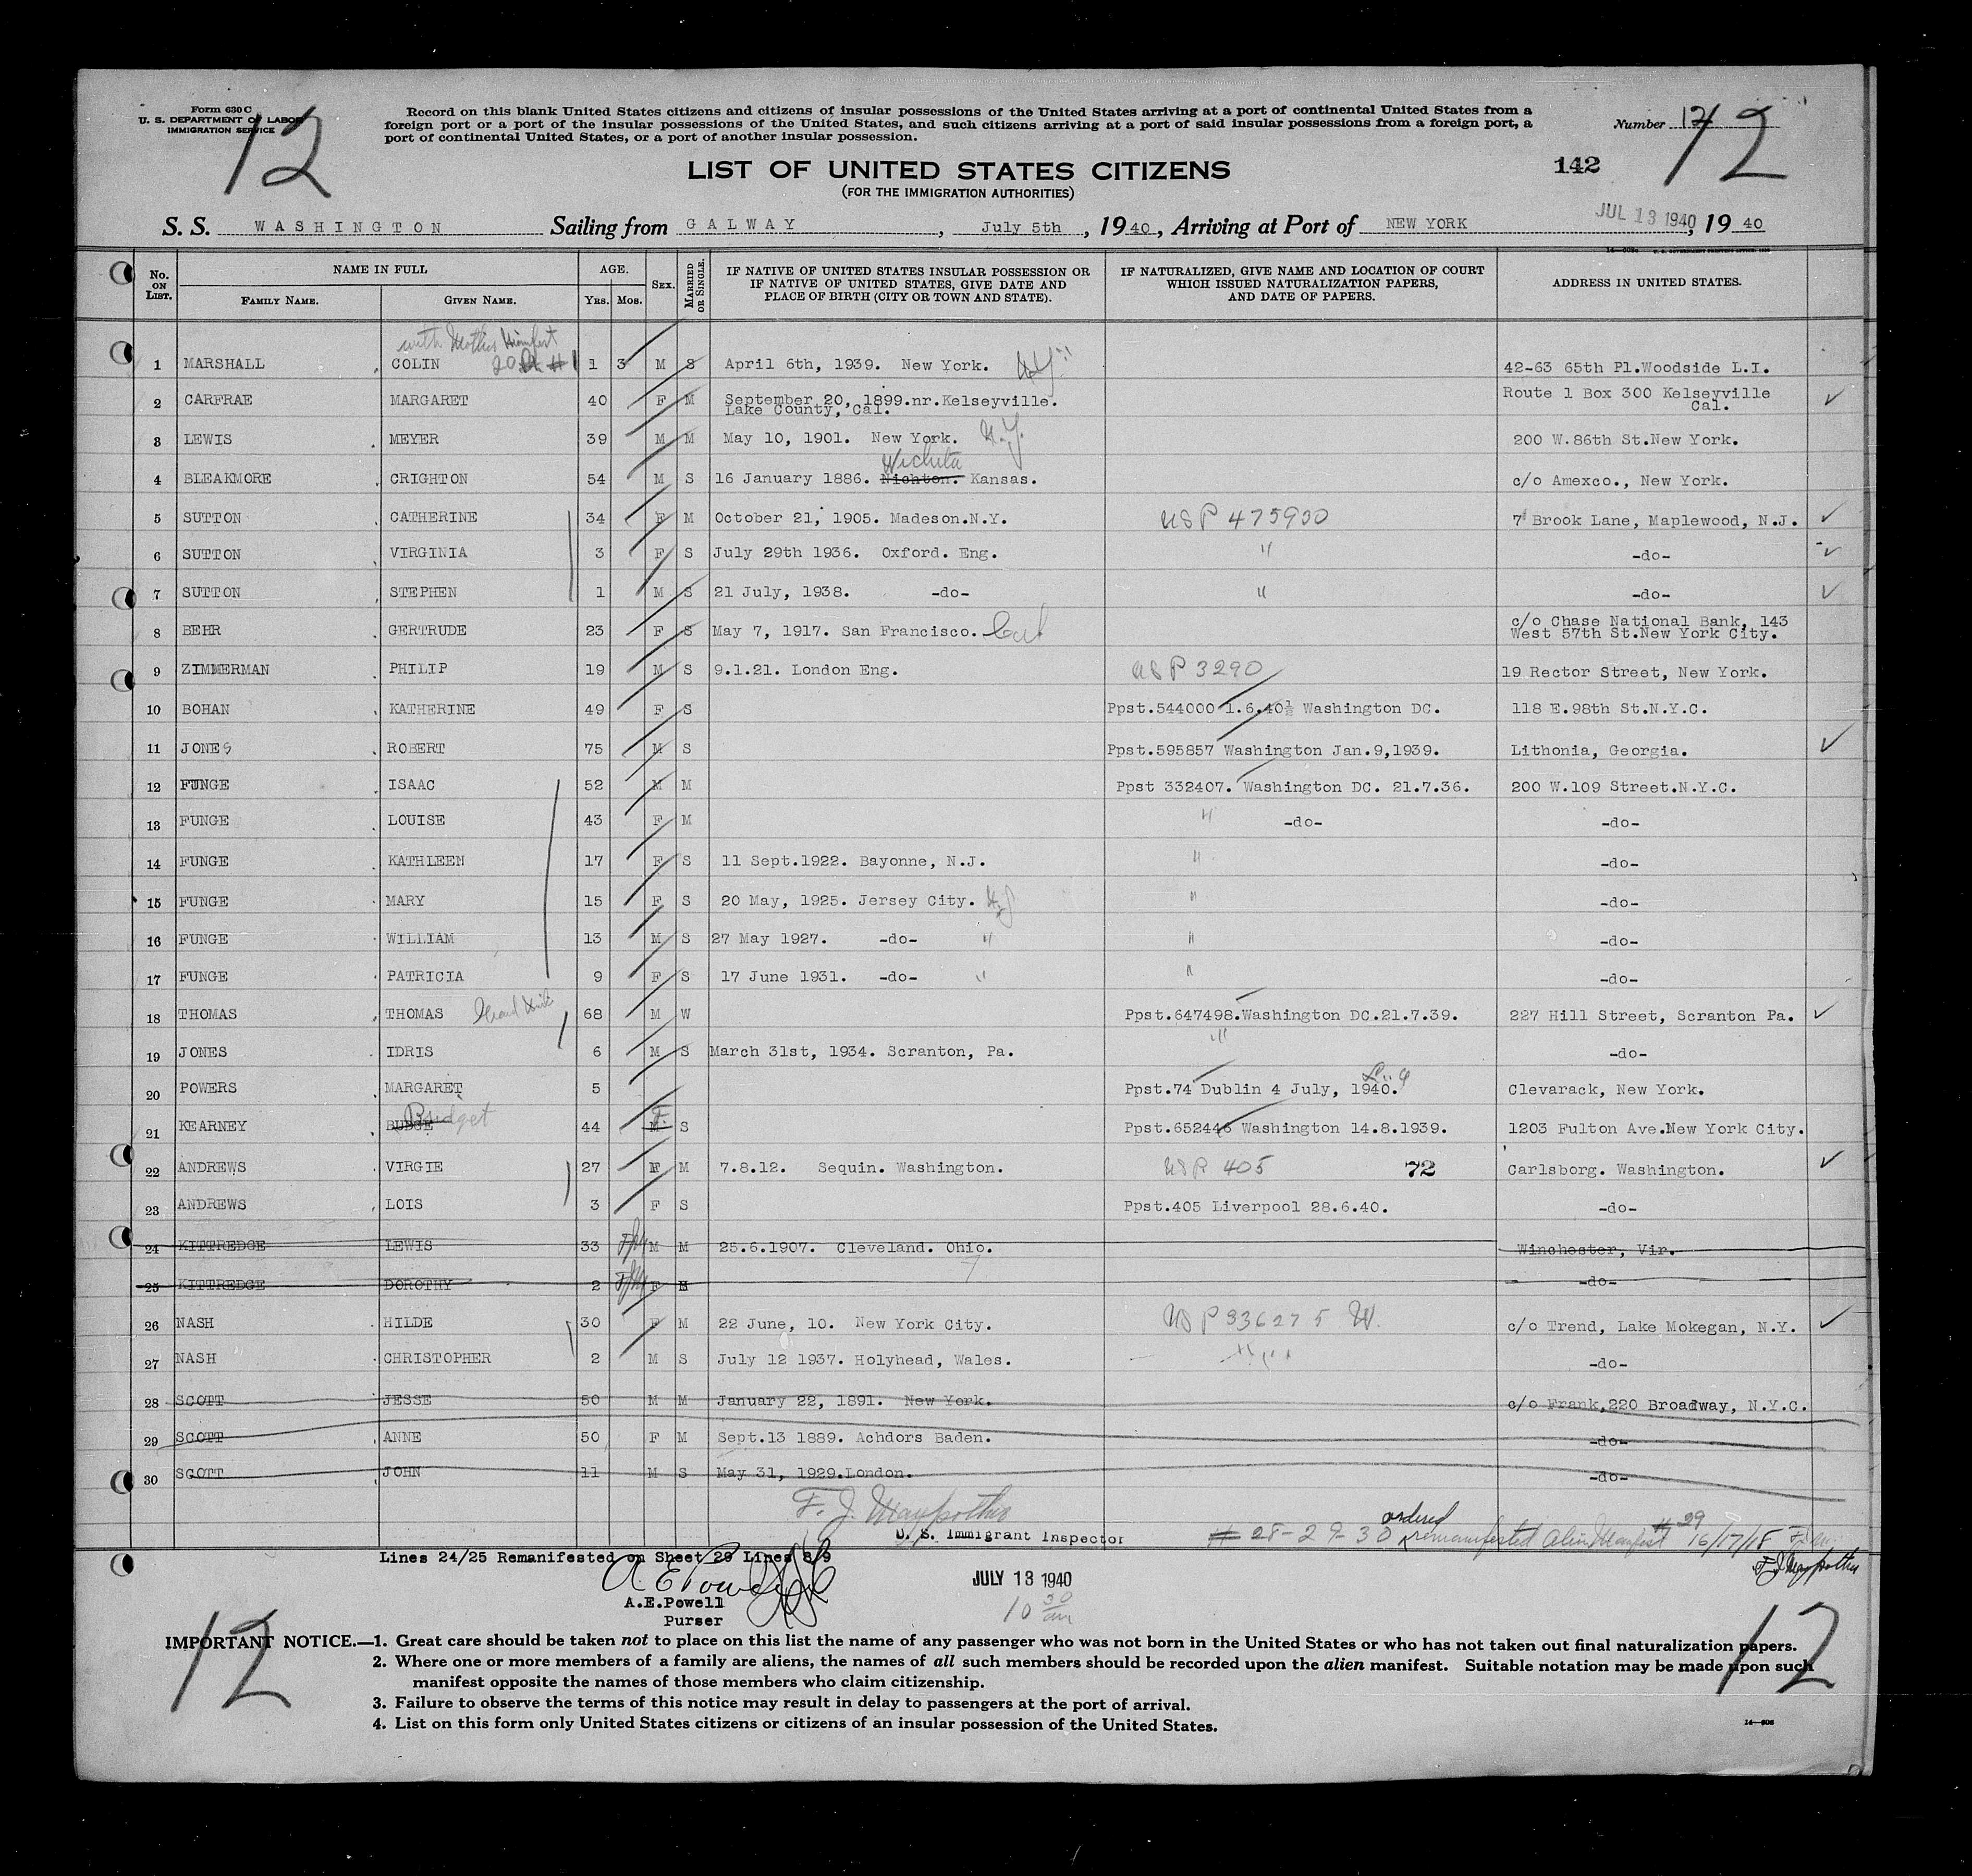 Form 630 C
U. S. DEPARTMENT OF LABOR
IMMIGRATION SERVICE
12
Record on this blank United States citizens and citizens of insular possessions of the United States arriving at a port of continental United States from a
foreign port or a port of the insular possessions of the United States, and such citizens arriving at a port of said insular possessions from a foreign port, a
port of continental United States, or a port of another insular possession.
Number 12
12
LIST OF UNITED STATES CITIZENS
(FOR THE IMMIGRATION AUTHORITIES)
142
S. S. WASHINGTON Sailing from GALWAY, July 5th, 1940, Arriving at Port of NEW YORK JUL 13 1940, 1940
No. ON LIST. NAME IN FULL FAMILY NAME. GIVEN NAME. AGE. YRS. MOS. SEX. MARRIED OR SINGLE. IF NATIVE OF UNITED STATES INSULAR POSSESSION OR IF NATIVE OF UNITED STATES, GIVE DATE AND PLACE OF BIRTH (CITY OR TOWN AND STATE). IF NATURALIZED, GIVE NAME AND LOCATION OF COURT WHICH ISSUED NATURALIZATION PAPERS, AND DATE OF PAPERS. ADDRESS IN UNITED STATES.
with Mothers Manifest
1 MARSHALL, COLIN 20 #1 1 3 M S April 6th, 1939. New York. N.Y. 42-63 65th Pl.Woodside L.I.
2 CARFRAE MARGARET 40 F M September 20, 1899.nr.Kelseyville. Lake County, Cal. Route 1 Box 300 Kelseyville Cal. ✓
3 LEWIS MEYER 39 M M May 10, 1901. New York. N.Y. 200 W.86th St.New York.
Wichita
4 BLEAKMORE CRIGHTON 54 M S 16 January 1886. Nichton. Kansas. c/o Amexco., New York.
5 SUTTON CATHERINE 34 F M October 21, 1905. Madeson.N.Y. USP 475930 7 Brook Lane, Maplewood, N.J. ✓
6 SUTTON VIRGINIA 3 F S July 29th 1936. Oxford. Eng. " -do- ✓
7 SUTTON STEPHEN 1 M S 21 July, 1938. -do- " -do- ✓
8 BEHR GERTRUDE 23 F S May 7, 1917. San Francisco. Cal c/o Chase National Bank, 143 West 57th St.New York City.
9 ZIMMERMAN PHILIP 19 M S 9.1.21. London Eng. USP 3290 19 Rector Street, New York.
10 BOHAN KATHERINE 49 F S Ppst.544000 1.6.40½ Washington DC. 118 E.98th St.N.Y.C.
11 JONES ROBERT 75 M S Ppst.595857 Washington Jan.9,1939. Lithonia, Georgia. ✓
12 FUNGE ISAAC 52 M M Ppst 332407. Washington DC. 21.7.36. 200 W.109 Street.N.Y.C.
13 FUNGE LOUISE 43 F M " -do- -do-
14 FUNGE KATHLEEN 17 F S 11 Sept.1922. Bayonne, N.J. " -do-
15 FUNGE MARY 15 F S 20 May, 1925. Jersey City. N.J " -do-
16 FUNGE WILLIAM 13 M S 27 May 1927. -do- " " -do-
17 FUNGE PATRICIA 9 F S 17 June 1931. -do- " " -do-
18 THOMAS THOMAS 68 M W Ppst.647498.Washington DC.21.7.39. 227 Hill Street, Scranton Pa. ✓
19 JONES IDRIS 6 M S March 31st, 1934. Scranton, Pa. " -do-
20 POWERS MARGARET 5 Ppst.74 Dublin 4 July, 1940. Clevarack, New York.
21 KEARNEY BUDGE Bridget 44 M F. S Ppst.652446 Washington 14.8.1939. 1203 Fulton Ave.New York City.
22 ANDREWS VIRGIE 27 F M 7.8.12. Sequin. Washington. USP 405 72 Carlsborg. Washington. ✓
23 ANDREWS LOIS 3 F S Ppst.405 Liverpool 28.6.40. -do-
24 KITTREDGE LEWIS 33 M M 25.6.1907. Cleveland. Ohio. Winchester, Vir.
25 KITTREDGE DOROTHY 2 F -do-
26 NASH HILDE 30 F M 22 June, 10. New York City. USP 336275 W. c/o Trend, Lake Mokegan, N.Y. ✓
27 NASH CHRISTOPHER 2 M S July 12 1937. Holyhead, Wales. " -do-
28 SCOTT JESSE 50 M M January 22, 1891. New York. c/o Frank,220 Broadway, N.Y.C.
29 SCOTT ANNE 50 F M Sept.13 1889. Achdors Baden. -do-
30 SCOTT JOHN 11 M S May 31, 1929.London. -do-
U. S. Immigrant Inspector
# 28-29-30 ordered remanifested Alien Manifest #29 16/17/18
Lines 24/25 Remanifested on Sheet 29 Lines 8/9
A E Powell
A.E.Powell
Purser
JULY 13 1940
10 30 am
12
12
IMPORTANT NOTICE.—1. Great care should be taken not to place on this list the name of any passenger who was not born in the United States or who has not taken out final naturalization papers.
2. Where one or more members of a family are aliens, the names of all such members should be recorded upon the alien manifest. Suitable notation may be made upon such
manifest opposite the names of those members who claim citizenship.
3. Failure to observe the terms of this notice may result in delay to passengers at the port of arrival.
4. List on this form only United States citizens or citizens of an insular possession of the United States.